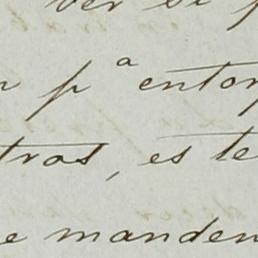 ver si p
n pª entor
tras, es te
e manden